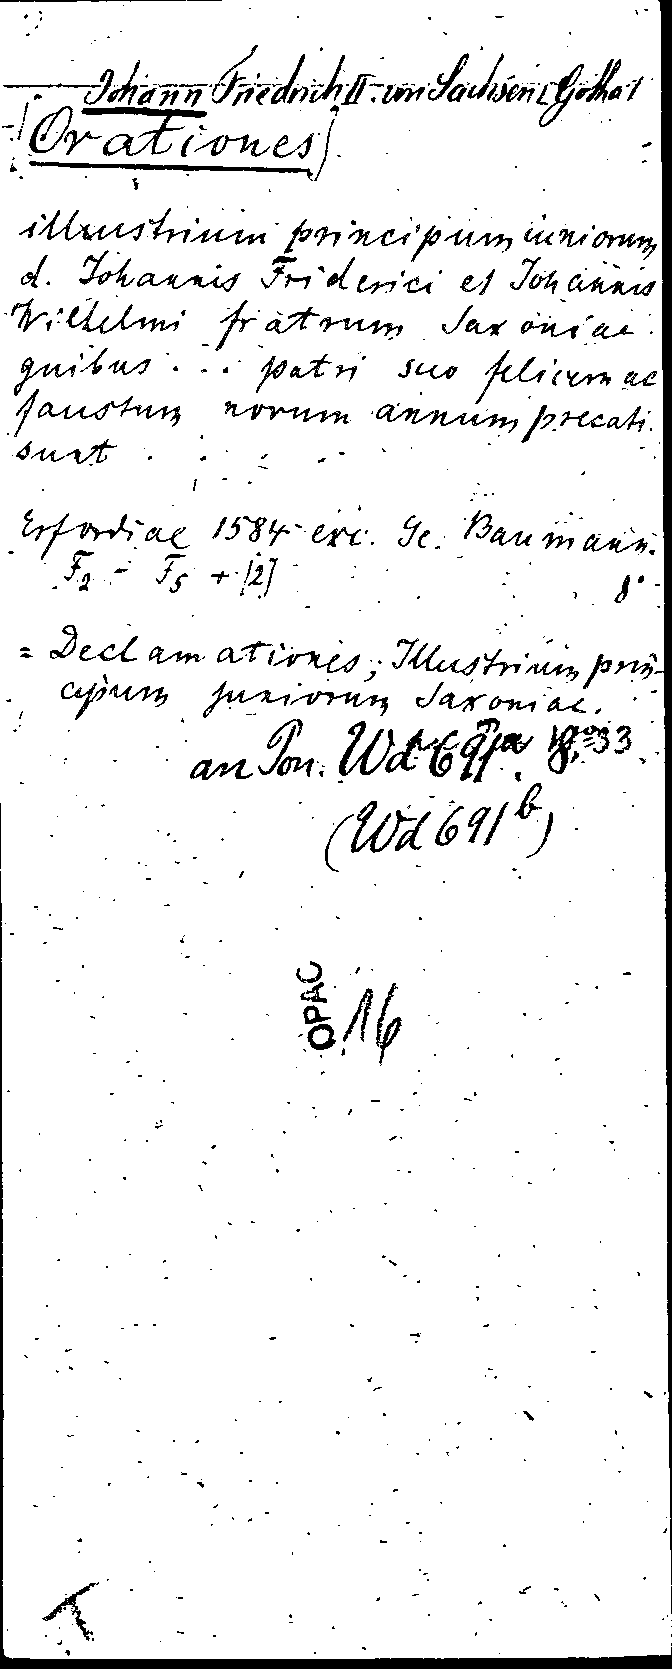 Johann Friedrich II. von Sachsen (Gotha)
[Orationes]
illustrium principum iuniorum
d. Johannis Friderici et Johannis
Wilhelmi fratrum Saxoniae
quibus . . . patri suo felicem ac
faustum novum annum precati
sunt . . . . .
Erfordiae 1584 exc. Ge. Baumann.
F2 - F5 + [2] 8°
= Declamationes, Illustrium prin-
cipum juniorum Saxoniae.
an Pon. Wd 691a 8° 33
(Wd 691b)
OPAC 16